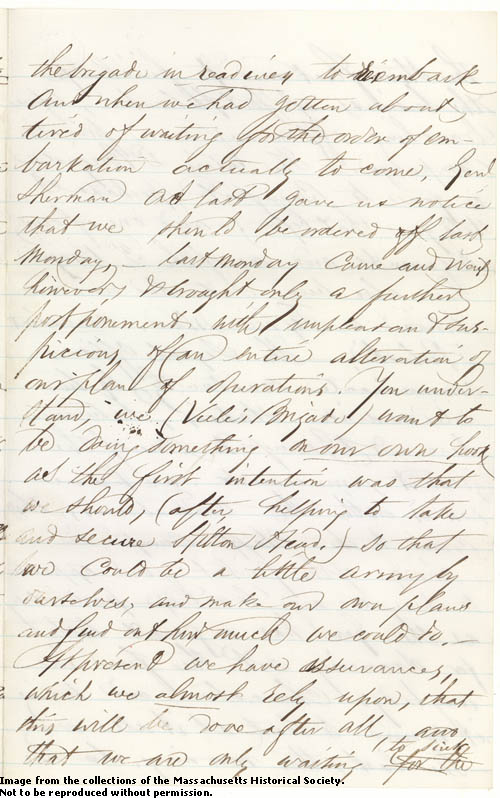 the brigade in readiness to reembark
And when we had gotten about
tired of waiting for the order of em-
barkation actually to come, Genl
Sherman at last gave us notice
that we should be ordered off last
Monday, - last Monday came and went
however, & brought only a further
postponement with unpleasant sus-
picions of an entire alteration of
our plan of operations. You under-
stand, we (Viele's Brigade) want to
be doing something on our own hook
as the first intention was that
we should, (after helping to take
and secure Hilton Head,) so that
we could be a little army by
ourselves, and make our own plans
and find out how much we could do. -
At present we have assurances,
which we almost rely upon, that
this will be done after all, and
that we are only waiting to sink for the
Image from the collections of the Massachusetts Historical Society.
Not to be reproduced without permission.